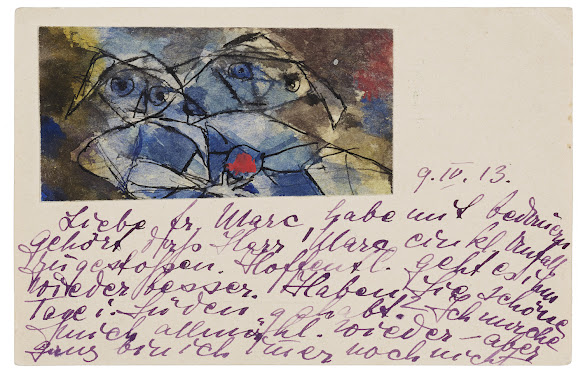 9. IV. 13.
Liebe Fr. Marc, habe mit bedauern
gehört dass Herr Marc ein kl. Unfall
zugestossen. Hoffentl. geht es ihm
wieder besser. Haben Sie schöne
Tage i. Süden gehabt. – Ich mache
mich allmähl. wieder – aber
ganz bin ich immer noch nicht